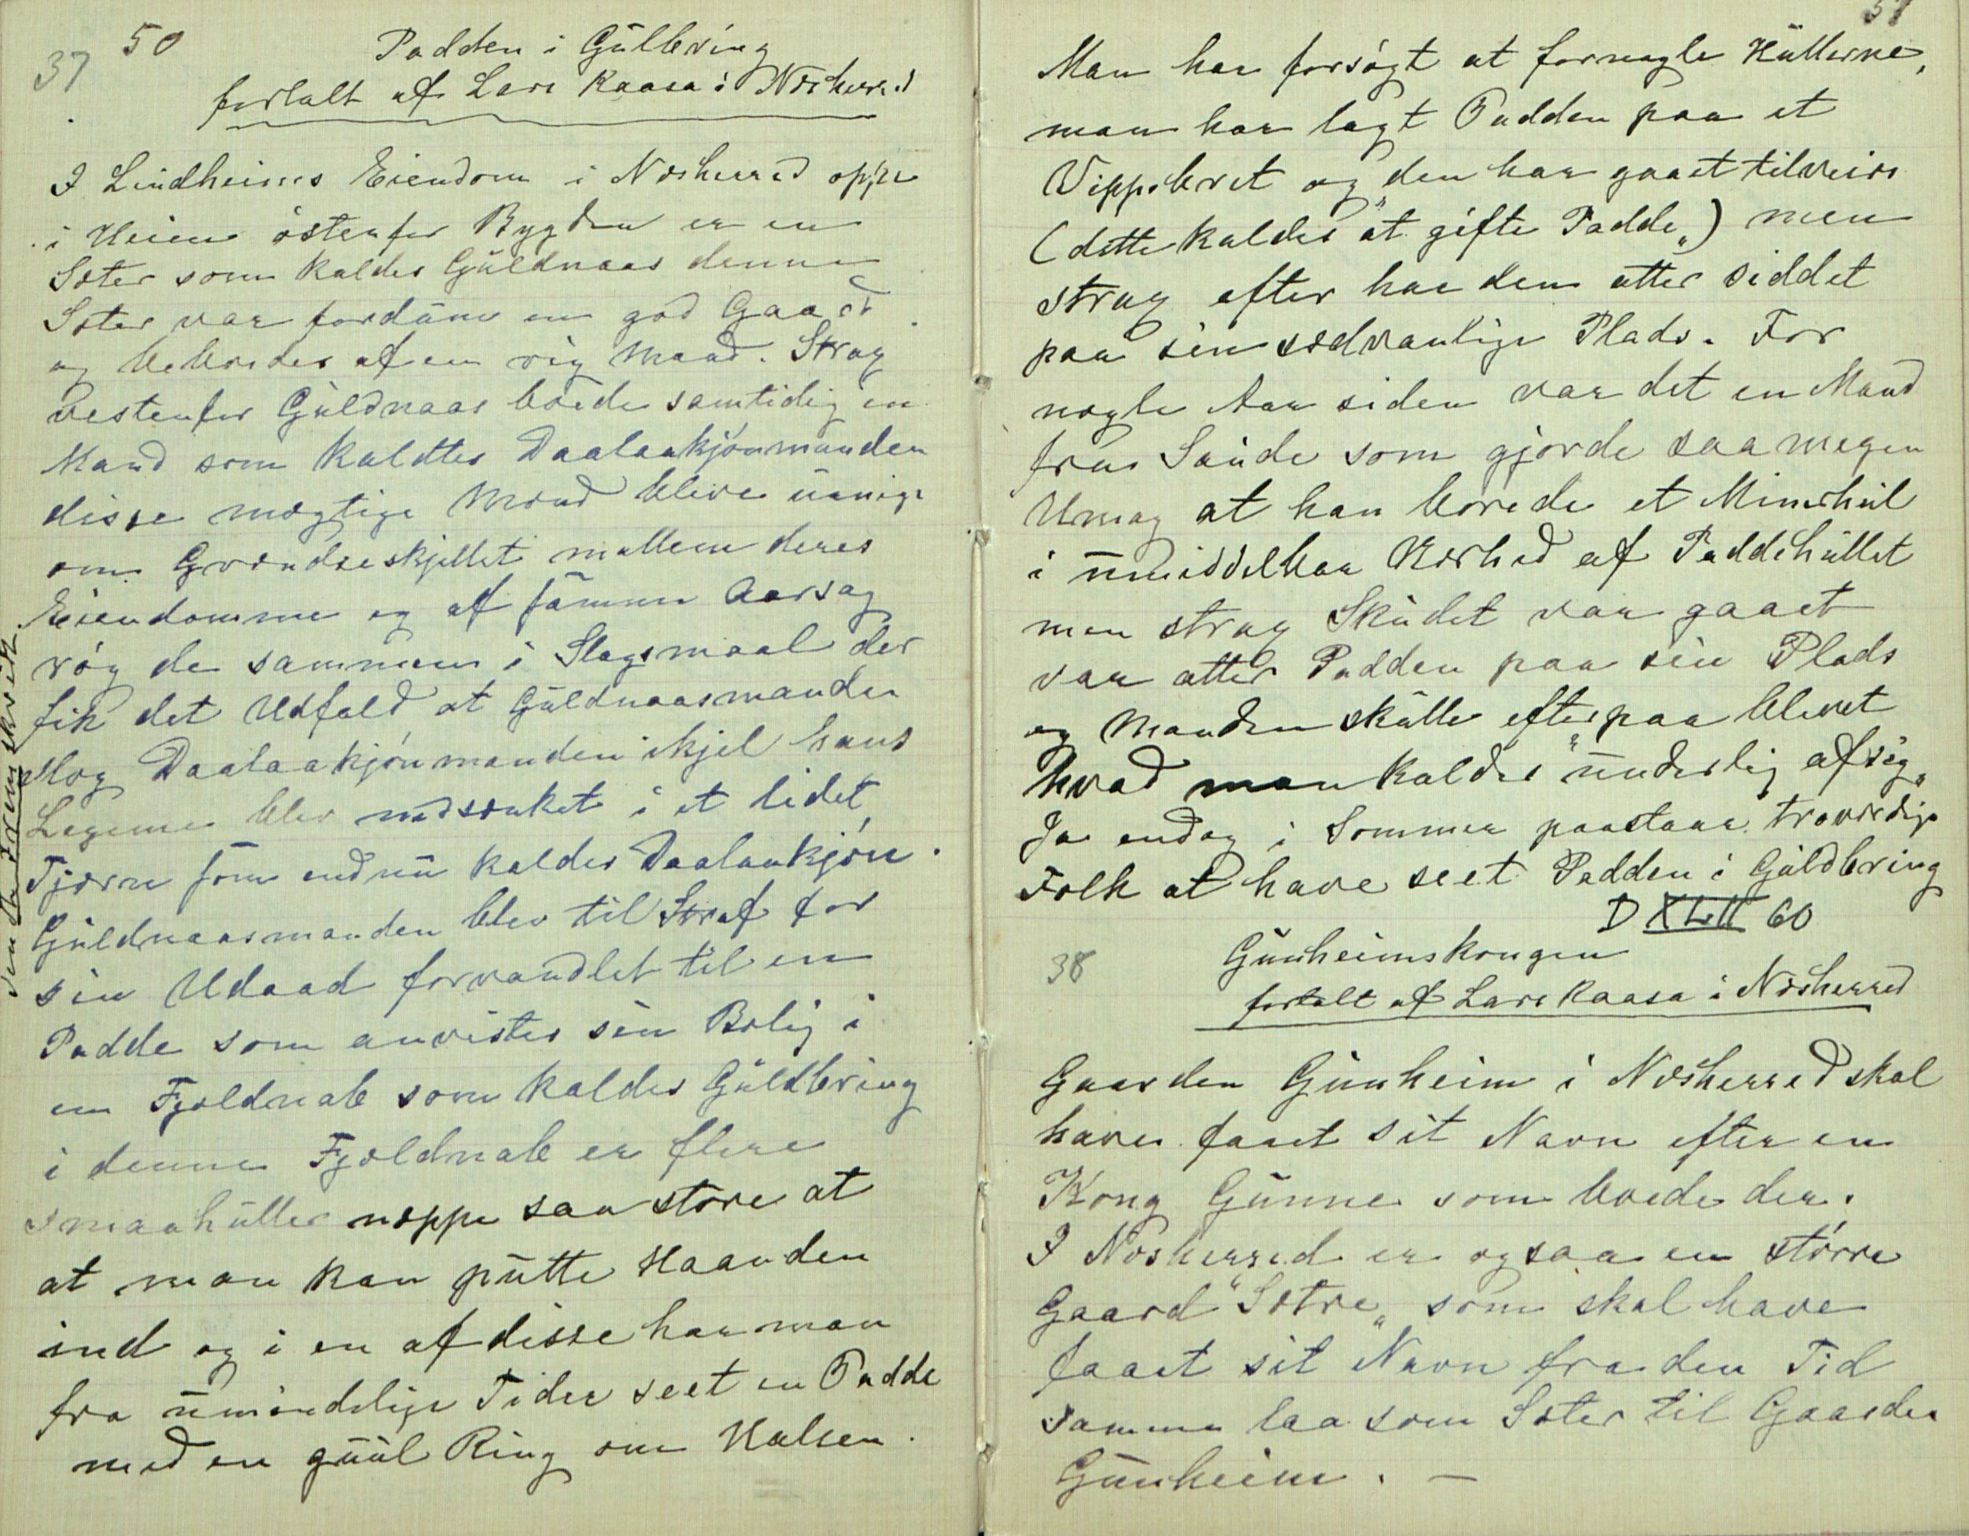 37
50
Padden i Gullbring
fortalt af Lars Kaasa i Næsherred
I Lindheims Eiendom i Næsherred oppe
i Heien østenfor Bygden er en
Sæter som kaldes Guldnaas denne
Sæter var fordum en god Gaard
og beboedes af en rig Mand. Strax
vestenfor Guldnaas boede samtidig en
Mand som kaldtes Daalaakjønmanden
disse mægtige Mænd bleve uenige
om Grændseskjellet mellem deres
Eiendomme og af samme Aarsag
røg de sammen i Slagsmaal der
fik det Udfald at Guldnaasmanden
slog Daalaakjønmanden ihjel hans
Legeme blev nedsænket i et lidet
Tjærn som endnu kaldes Daalaakjøn.
Guldnaasmanden blev til Straf for
sin Udaad forvandlet til en
Padde som anvistes sin Bolig i
en Fjeldnab som kaldes Guldbring
i denne Fjeldnab er flere
smaahuller neppe saa store at
at man kan putte Haanden
ind og i en af disse har man
fra umindelige Tider seet en Padde
med en guul Ring om Halsen.
51
Man har forsøgt at fornagle Hullerne,
man har lagt Padden paa et
Vippebret og den har gaaet tilveirs
(dette kaldes "at gifte Padde") men
strax efter har den atter siddet
paa sin sædvanlige Plads. For
nogle Aar siden var det en Mand
fra Saude som gjorde saa megen
Umag at han borede et Minerhul
i umiddelbar Nærhed af Paddehullet
men strax Skudet var gaaet
var atter Padden paa sin Plads
og Manden skulle efterpaa blevet
hvad man kaldes "underlig af sig"
Ja endog i Sommer paastaar troværdige
Folk at have seet Padden i Guldbring
D XLII 60
38
Gunheimskongen
fortalt af Lars Kaasa i Næsherred
Gaarden Gunheim i Næsherred skal
have faaet sit Navn efter en
Kong Gunne som boede der.
I Næsherred er ogsaa en større
Gaard "Sætre" som skal have
faaet sit Navn fra den Tid
samme laa som Sæter til Gaarden
Gunheim. —